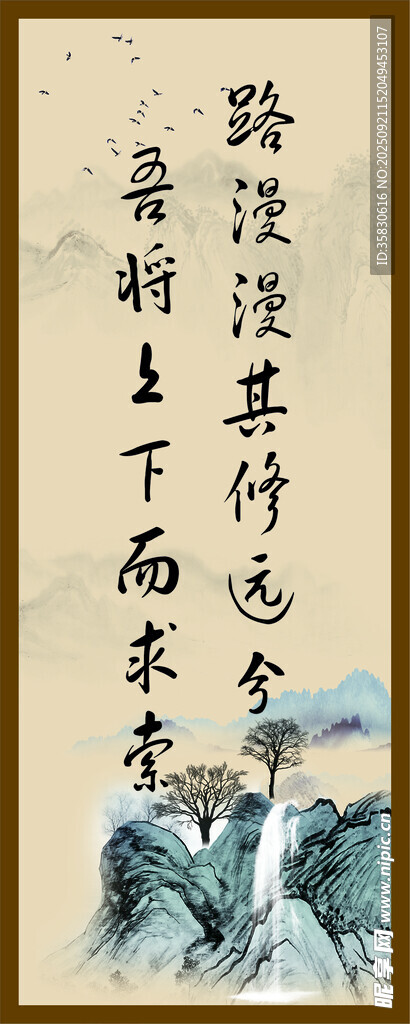 路漫漫其修远兮
吾将上下而求索
ID:35830616 NO:20250921152049453107
昵享网 www.nipic.cn